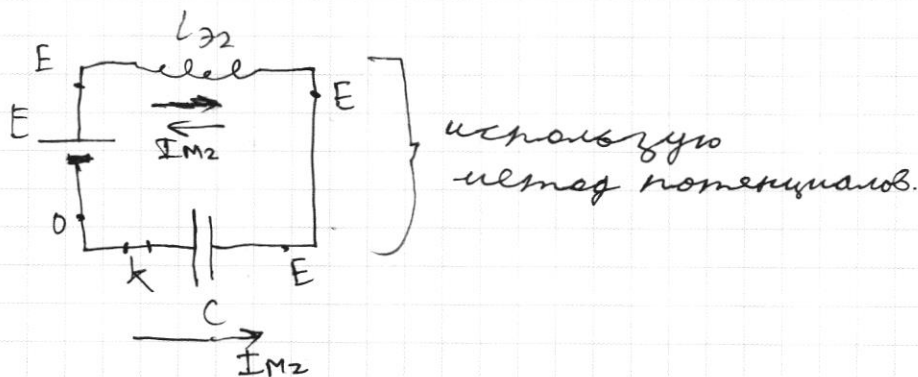 Lэ2
E
E
E
Iм2
использую
метод потенциалов.
0
K
E
C
Iм2